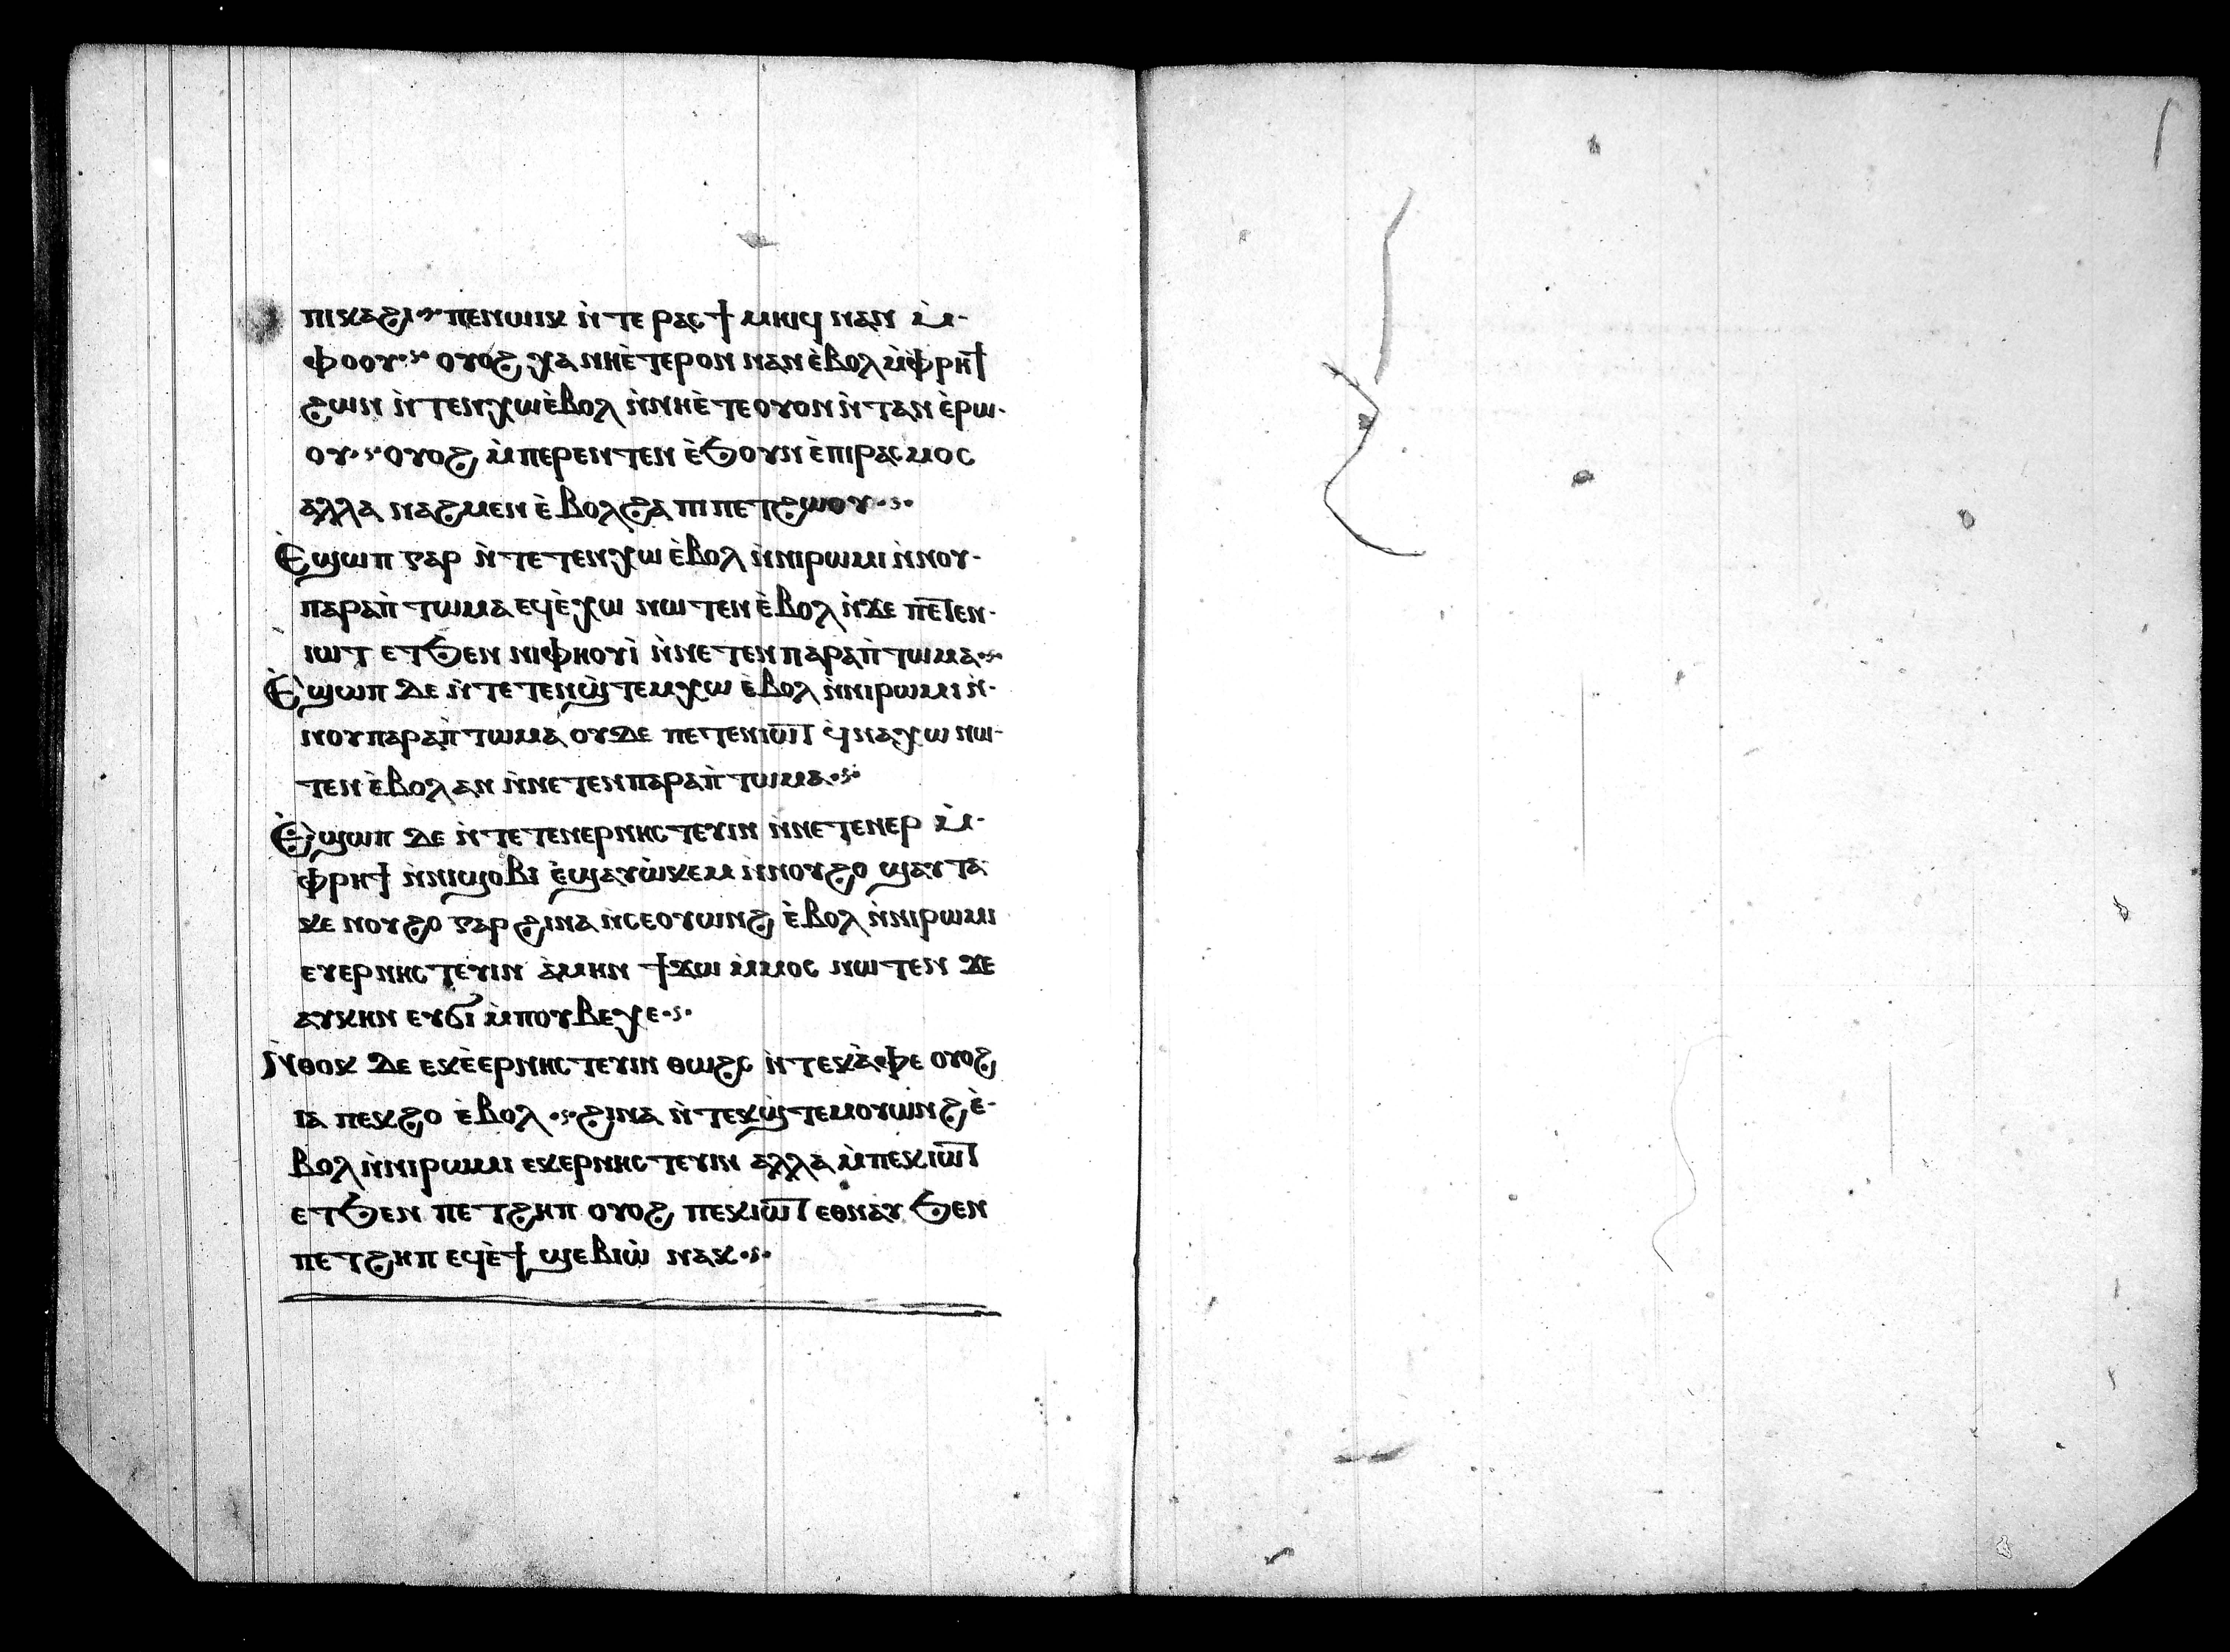 ⲡⲓⲕⲁϩⲓ ⲡⲉⲛⲱⲓⲕ ⲛ̀ⲧⲉ ⲣⲁⲥϯ ⲙⲏⲓϥ ⲛⲁⲛ ⲙ̀-
ⲫⲟⲟⲩ ⲟⲩⲟϩ ⲭⲁ ⲛⲏⲉ̀ⲧⲉⲣⲟⲛ ⲛⲁⲛ ⲉ̀ⲃⲟⲗ ⲙ̀ⲫⲣⲏϯ
ϩⲱⲛ ⲛ̀ⲧⲉⲛⲭⲱ ⲉ̀ⲃⲟⲗ ⲛ̀ⲛⲏⲉ̀ⲧⲉ ⲟⲩⲟⲛ ⲛ̀ⲧⲁⲛ ⲉ̀ⲣⲱ-
ⲟⲩ ⲟⲩⲟϩ ⲙ̀ⲡⲉⲣⲉⲛⲧⲉⲛ ⲉ̀ϧⲟⲩⲛ ⲉ̀ⲡⲓⲣⲁⲥⲙⲟⲥ
ⲁⲗⲗⲁ ⲛⲁϩⲙⲉⲛ ⲉ̀ⲃⲟⲗϩⲁ ⲡⲓⲡⲉⲧϩⲱⲟⲩ
Ⲉ̀ϣⲱⲡ ⲅⲁⲣ ⲛ̀ⲧⲉⲧⲉⲛⲭⲱ ⲉ̀ⲃⲟⲗ ⲛ̀ⲛⲓⲣⲱⲙⲓ ⲛ̀ⲛⲟⲩ-
ⲡⲁⲣⲁⲡ̀ⲧⲱⲙⲁ ⲉϥⲉ̀ⲭⲱ ⲛⲱⲧⲉⲛ ⲉ̀ⲃⲟⲗ ⲛ̀ϫⲉ ⲡⲉⲧⲉⲛ-
ⲓⲱⲧ ⲉⲧϧⲉⲛ ⲛⲓⲫⲏⲟⲩⲓ̀ ⲛ̀ⲛⲉⲧⲉⲛⲡⲁⲣⲁⲡ̀ⲧⲱⲙⲁ
Ⲉ̀ϣⲱⲡ ⲇⲉ ⲛ̀ⲧⲉⲧⲉⲛϣ̀ⲧⲉⲙⲭⲱ ⲉ̀ⲃⲟⲗ ⲛ̀ⲛⲓⲣⲱⲙⲓ ⲛ̀-
ⲛⲟⲩⲡⲁⲣⲁⲡ̀ⲧⲱⲙⲁ ⲟⲩⲇⲉ ⲡⲉⲧⲉⲛⲓⲱⲧ ϥ̀ⲛⲁⲭⲱ ⲛⲱ-
ⲧⲉⲛ ⲉ̀ⲃⲟⲗ ⲁⲛ ⲛ̀ⲛⲉⲧⲉⲛⲡⲁⲣⲁⲡ̀ⲧⲱⲙⲁ
Ⲉ̀ϣⲱⲡ ⲇⲉ ⲛ̀ⲧⲉⲧⲉⲛⲉⲣⲛⲏⲥⲧⲉⲩⲓⲛ ⲛ̀ⲛⲉⲧⲉⲛⲉⲣ ⲙ̀-
ⲫⲣⲏϯ ⲛ̀ⲛⲓϣⲟⲃⲓ ⲉ̀ϣⲁⲩⲱ̀ⲕⲉⲙ ⲛ̀ⲛⲟⲩϩⲟ ϣⲁⲩⲧⲁ
ⲕⲉ ⲛⲟⲩϩⲟ ⲅⲁⲣ ϩⲓⲛⲁ ⲛ̀ⲥⲉⲟⲩⲱⲛϩ ⲉ̀ⲃⲟⲗ ⲛ̀ⲛⲓⲣⲱⲙⲓ
ⲉⲩⲉⲣⲛⲏⲥⲧⲉⲩⲓⲛ ⲁ̀ⲙⲏⲛ ϯϫⲱ ⲙ̀ⲙⲟⲥ ⲛⲱⲧⲉⲛ ϫⲉ
ⲁⲩⲕⲏⲛ ⲉⲩϭⲓ ⲙ̀ⲡⲟⲩⲃⲉⲭⲉ
Ⲛ̀ⲑⲟⲕ ⲇⲉ ⲉⲕⲉ̀ⲉⲣⲛⲏⲥⲧⲉⲩⲓⲛ ⲑⲱϩⲥ ⲛ̀ⲧⲉⲕⲁ̀ⲫⲉ ⲟⲩⲟϩ
ⲓⲁ ⲡⲉⲕϩⲟ ⲉ̀ⲃⲟⲗ ϩⲓⲛⲁ ⲛ̀ⲧⲉⲕϣ̀ⲧⲉⲙⲟⲩⲱⲛϩ ⲉ̀-
ⲃⲟⲗ ⲛ̀ⲛⲓⲣⲱⲙⲓ ⲉⲕⲉⲣⲛⲏⲥⲧⲉⲩⲓⲛ ⲁⲗⲗⲁ ⲙ̀ⲡⲉⲕⲓⲱⲧ
ⲉⲧϧⲉⲛ ⲡⲉⲧϩⲏⲡ ⲟⲩⲟϩ ⲡⲉⲕⲓⲱⲧ ⲉⲑⲛⲁⲩ ϧⲉⲛ
ⲡⲉⲧϩⲏⲡ ⲉϥⲉ̀ϯ ϣⲉⲃⲓⲱ̀ ⲛⲁⲕ